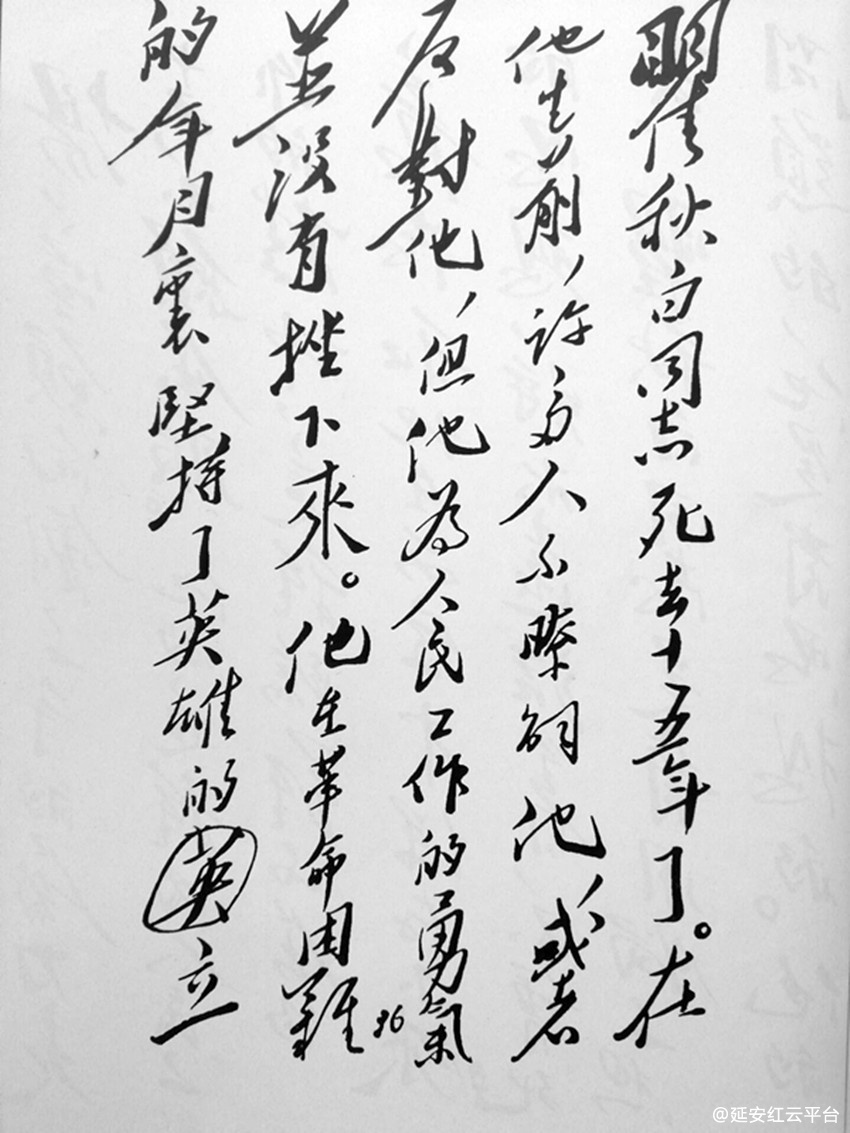 瞿秋白同志死去十五年了。在
他生前，许多人不瞭解他，或者
反對他，但他為人民工作的勇氣
並没有挫下來。他在革命困難
的年月裏堅持了英雄的英立
36
@延安红云平台